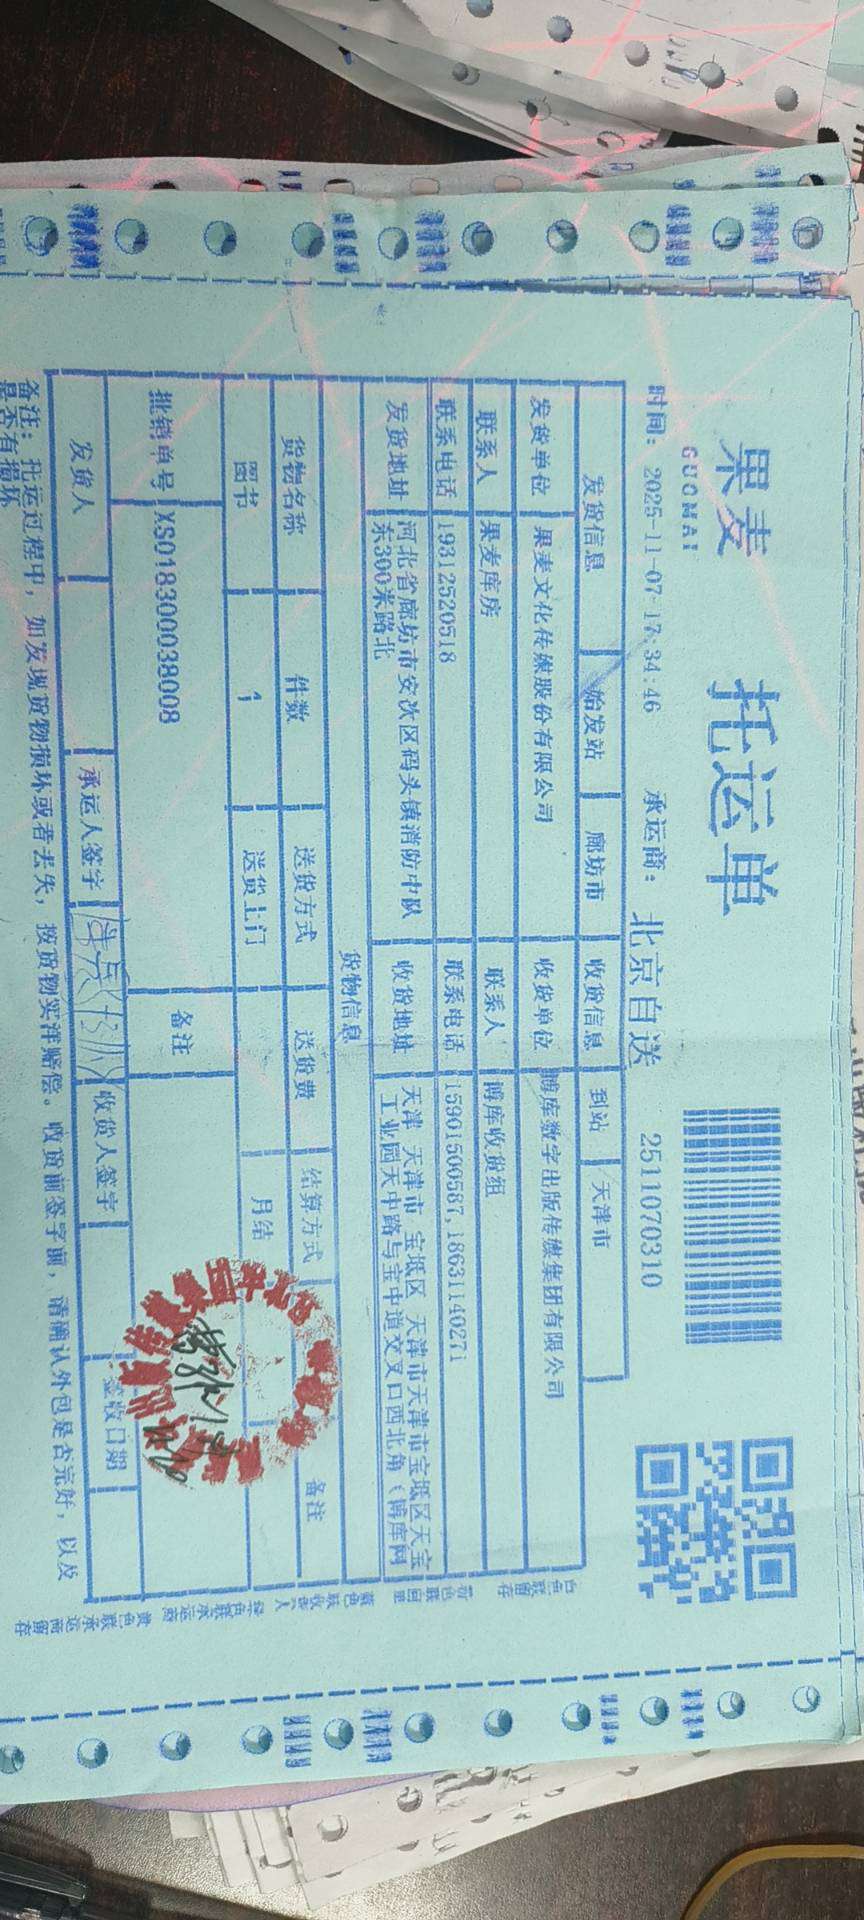 果麦
GUOMAI
托运单
2511070310
时间: 2025-11-07 17:34:46 承运商: 北京自送
发货信息 始发站 廊坊市 收货信息 到站 天津市
发货单位 果麦文化传媒股份有限公司 收货单位 博库数字出版传媒集团有限公司
联系人 果麦库房 联系人 博库收货组
联系电话 19312520518 联系电话 15901500587,18631140271
发货地址 河北省廊坊市安次区码头镇消防中队东300米路北 收货地址 天津 天津市 宝坻区 天津市天津市宝坻区天宝工业园天中路与宝中道交叉口西北角(博库网
货物信息
货物名称 件数 送货方式 送货费 结算方式 备注
图书 1 送货上门 月结
批销单号 XS018300038008 备注
发货人 承运人签字 收货人签字 签收日期
备注: 托运过程中, 如发现货物损坏或者丢失, 按货物实洋赔偿。收货前签字前, 请确认外包是否完好, 以及
是否有损坏